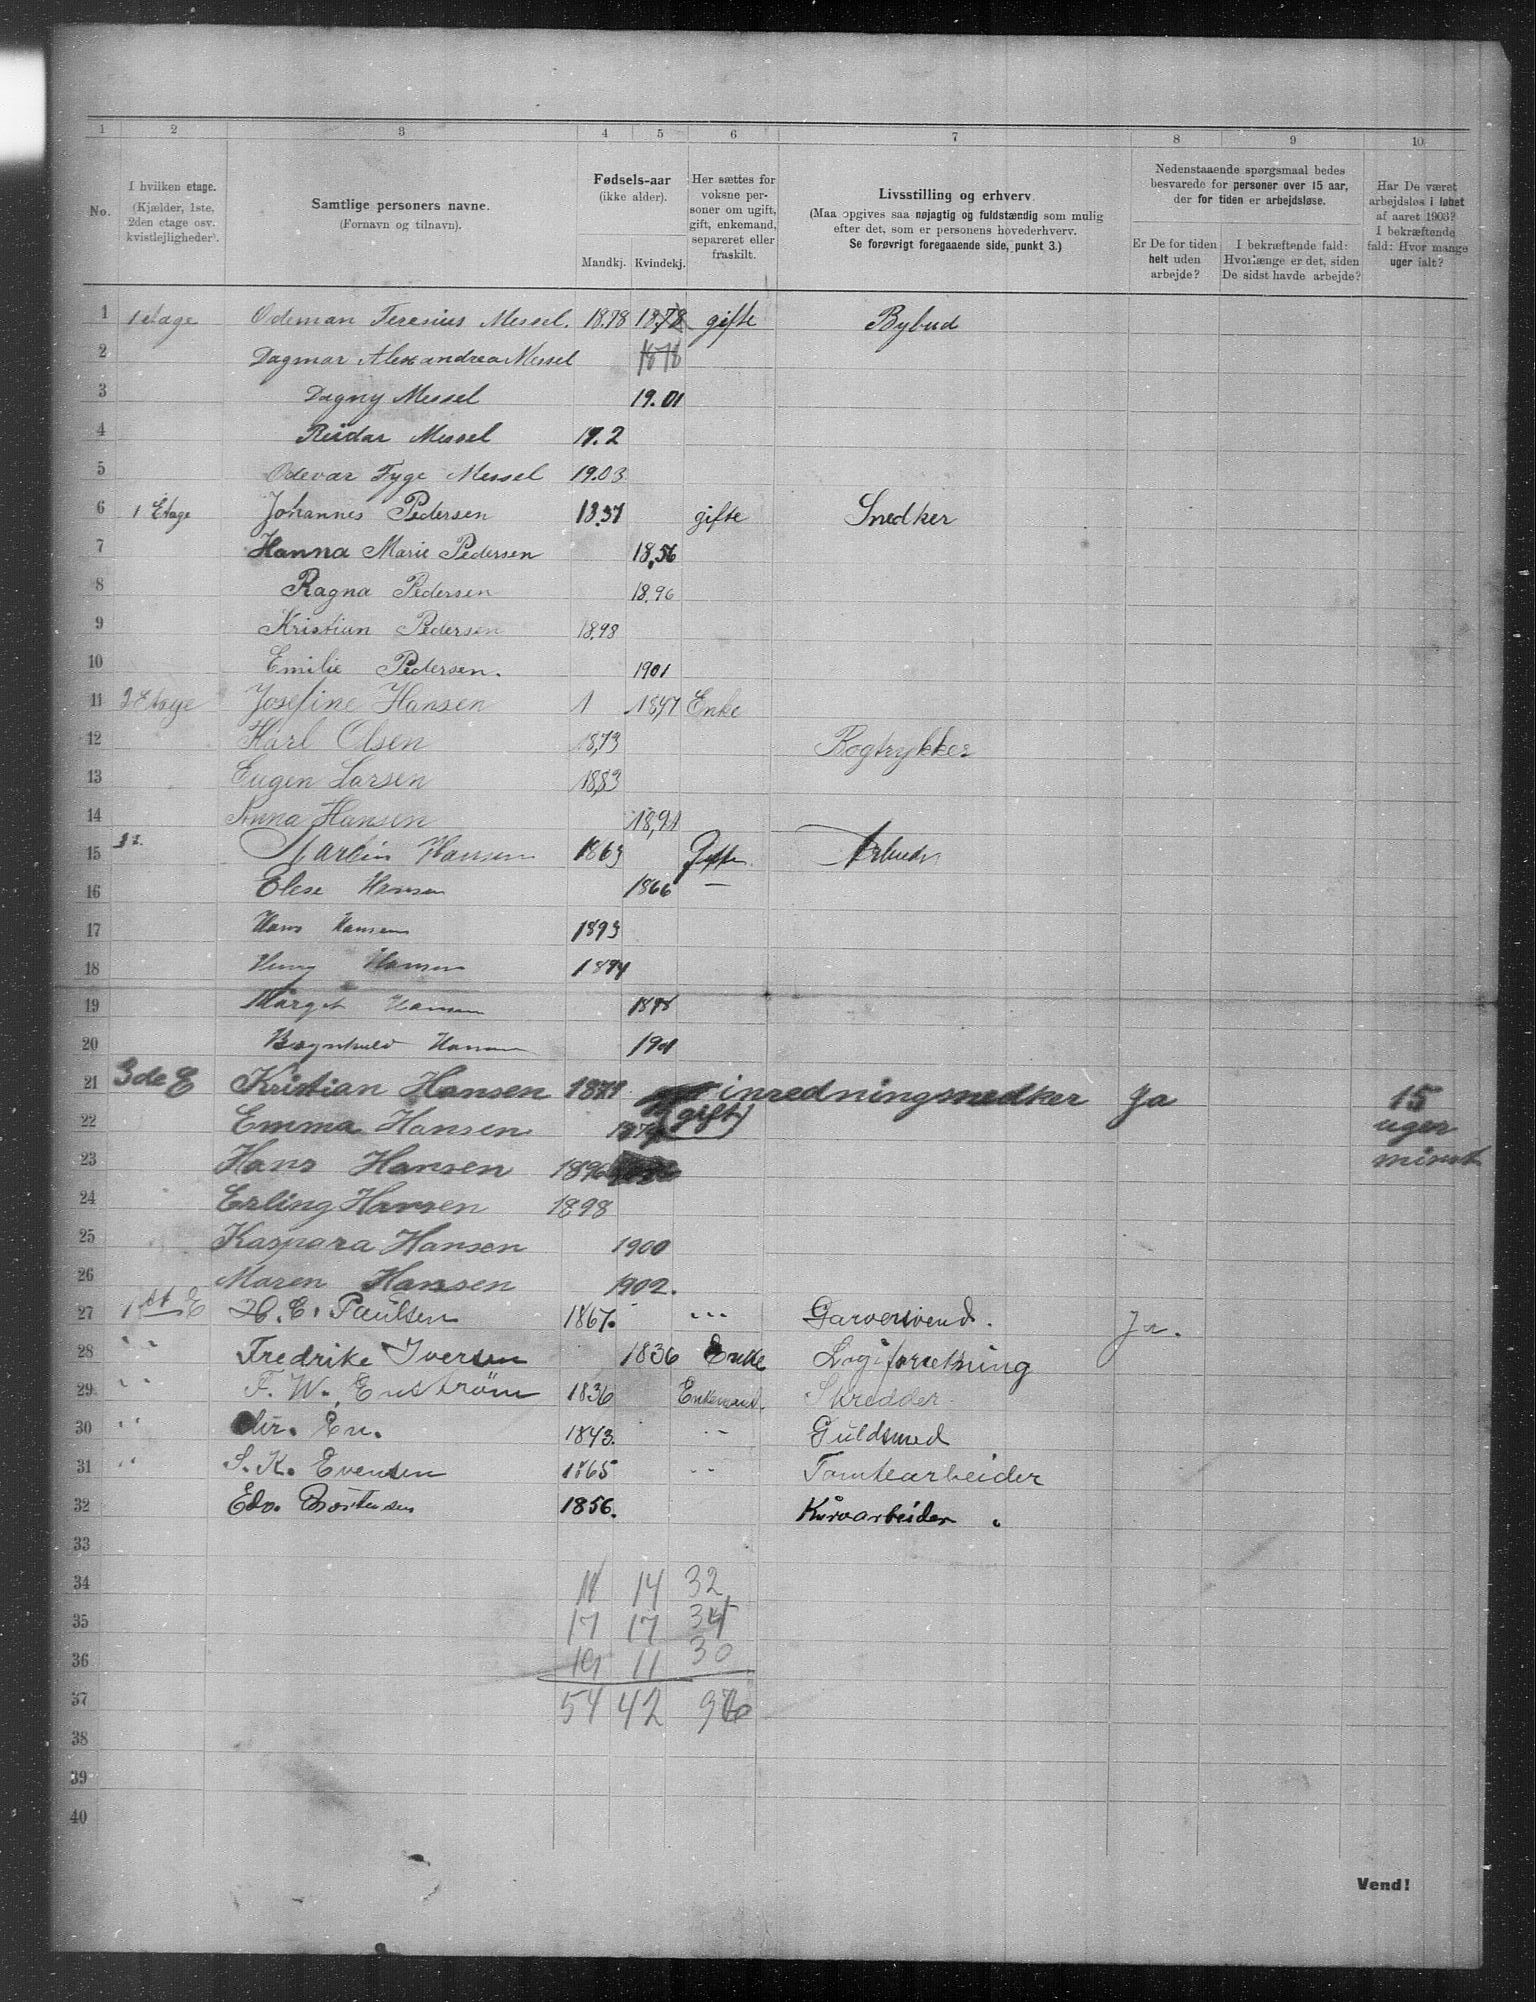 1 2 3 4 5 6 7 8 9 10
No.
I hvilken etage.
(Kjælder, 1ste, 2den etage osv. kvistlejligheder).
Samtlige personers navne.
(Fornavn og tilnavn).
Fødsels-aar
(ikke alder).
Mandkj. Kvindekj.
Her sættes for voksne personer om ugift, gift, enkemand, separeret eller fraskilt.
Livsstilling og erhverv.
(Maa opgives saa nøjagtig og fuldstændig som mulig efter det, som er personens hovederhverv.
Se forøvrigt foregaaende side, punkt 3.)
Nedenstaaende spørgsmaal bedes besvarede for personer over 15 aar, der for tiden er arbejdsløse.
Er De for tiden helt uden arbejde?
I bekræftende fald: Hvor længe er det, siden De sidst havde arbejde?
Har De været arbejdsløs i løbet af aaret 1903? I bekræftende fald: Hvor mange uger ialt?
1 1 etage Odeman Teresius Messel. 18.78 1878 gifte Bybud
2 Dagmar Alexandrea Messel 1878
3 Dagny Messel 19.01
4 Reidar Messel 19.2
5 Odevar Tyge Messel 19.03
6 1 Etage Johannes Pedersen 18.57 gifte Snedker
7 Hanna Marie Pedersen 18,56
8 Ragna Pedersen 18.96
9 Kristian Pedersen 18.98
10 Emilie Pedersen. 1901
11 2 Etage Josefine Hansen 1 1847 Enke
12 Karl Olsen 18,73 Bogtrykker
13 Eugen Larsen 18,83
14 Anna Hansen 18,91
15 Martin Hansen 1863 Gifte Arbeids
16 Elese Hansen 1866 —
17 Hans Hansen 1893
18 Hansen 1894
19 Marget Hansen 1898
20 Hansen 1901
21 3de E Kristian Hansen 1871 inredningsnedker Ja 15
22 Emma Hansen (gift) uger
23 Hans Hansen 1896 minst
24 Erling Hansen 1898
25 Kaspara Hansen 1900
26 Maren Hansen 1902.
27 1st E H. E. Paulsen 1867. --- Garversvend. Ja.
28 " " Fredrike Iversen 1836 Enke Logiforretning
29 " " F. W. Enström 1836 Enkemand. Skredder
30 " " Chr. En. 1843. -- Guldsmed
31 " " S. K. Evensen 1865 -- Tomtearbeider
32 Edv. 1856.
33
34 11 14 32
35 17 17 34
36 19 11 30
37 54 42 96
38
39
40
Vend!